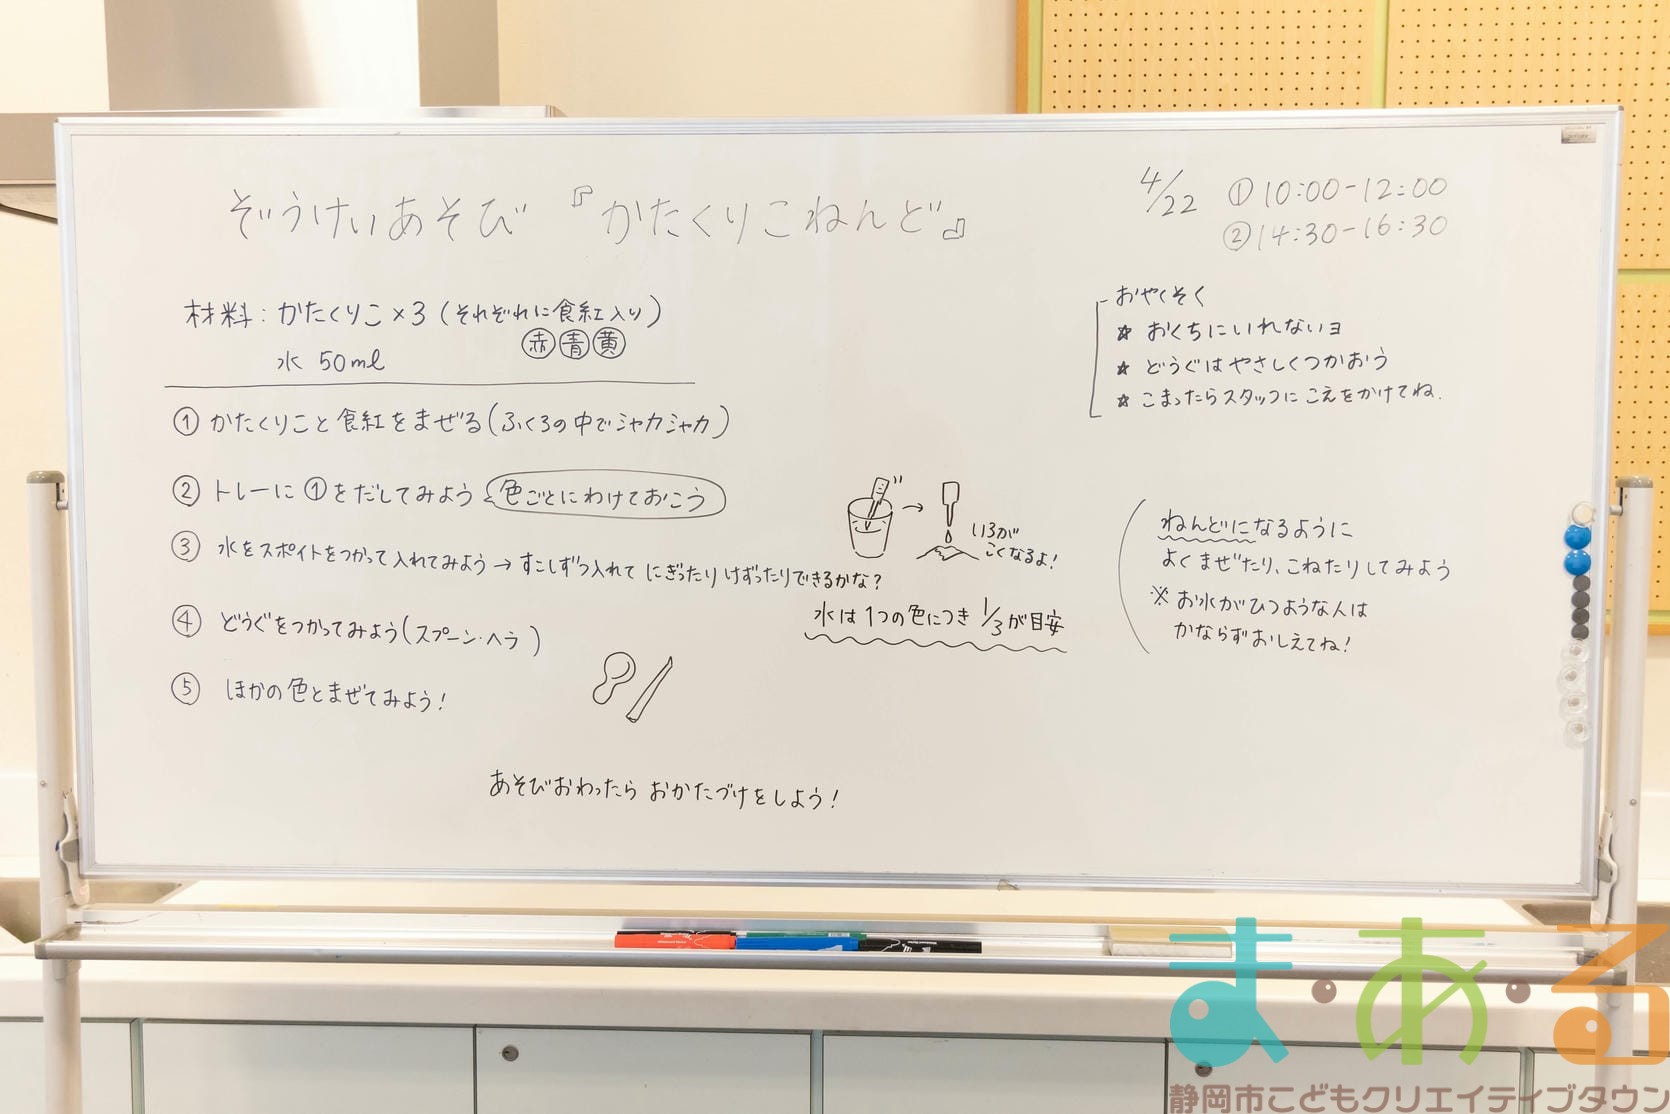 ぞうけいあそび『かたくりこねんど』
4/22 ①10:00-12:00
②14:30-16:30
材料:かたくりこ×3(それぞれに食紅入り)
赤 青 黄
水 50ml
①かたくりこと食紅をまぜる(ふくろの中でシャカシャカ)
②トレーに①をだしてみよう 色ごとにわけておこう
③水をスポイトをつかって入れてみよう→すこしずつ入れて にぎったりけずったりできるかな?
④どうぐをつかってみよう(スプーン・ヘラ)
⑤ほかの色とまぜてみよう!
いろが
こくなるよ!
水は1つの色につき1/3が目安
あそびおわったら おかたづけをしよう!
おやくそく
☆ おくちにいれないヨ
☆ どうぐはやさしくつかおう
☆ こまったらスタッフにこえをかけてね.
ねんどになるように
よくまぜたり、こねたりしてみよう
※お水がひつような人は
かならずおしえてね!
ま・あ・る
静岡市こどもクリエイティブタウン